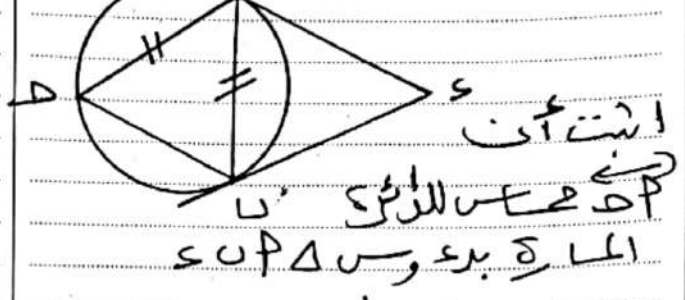 ح
ء
اثبت أن
ب
أح مماس للدائرة
المارة برءوس △ أ ب ء